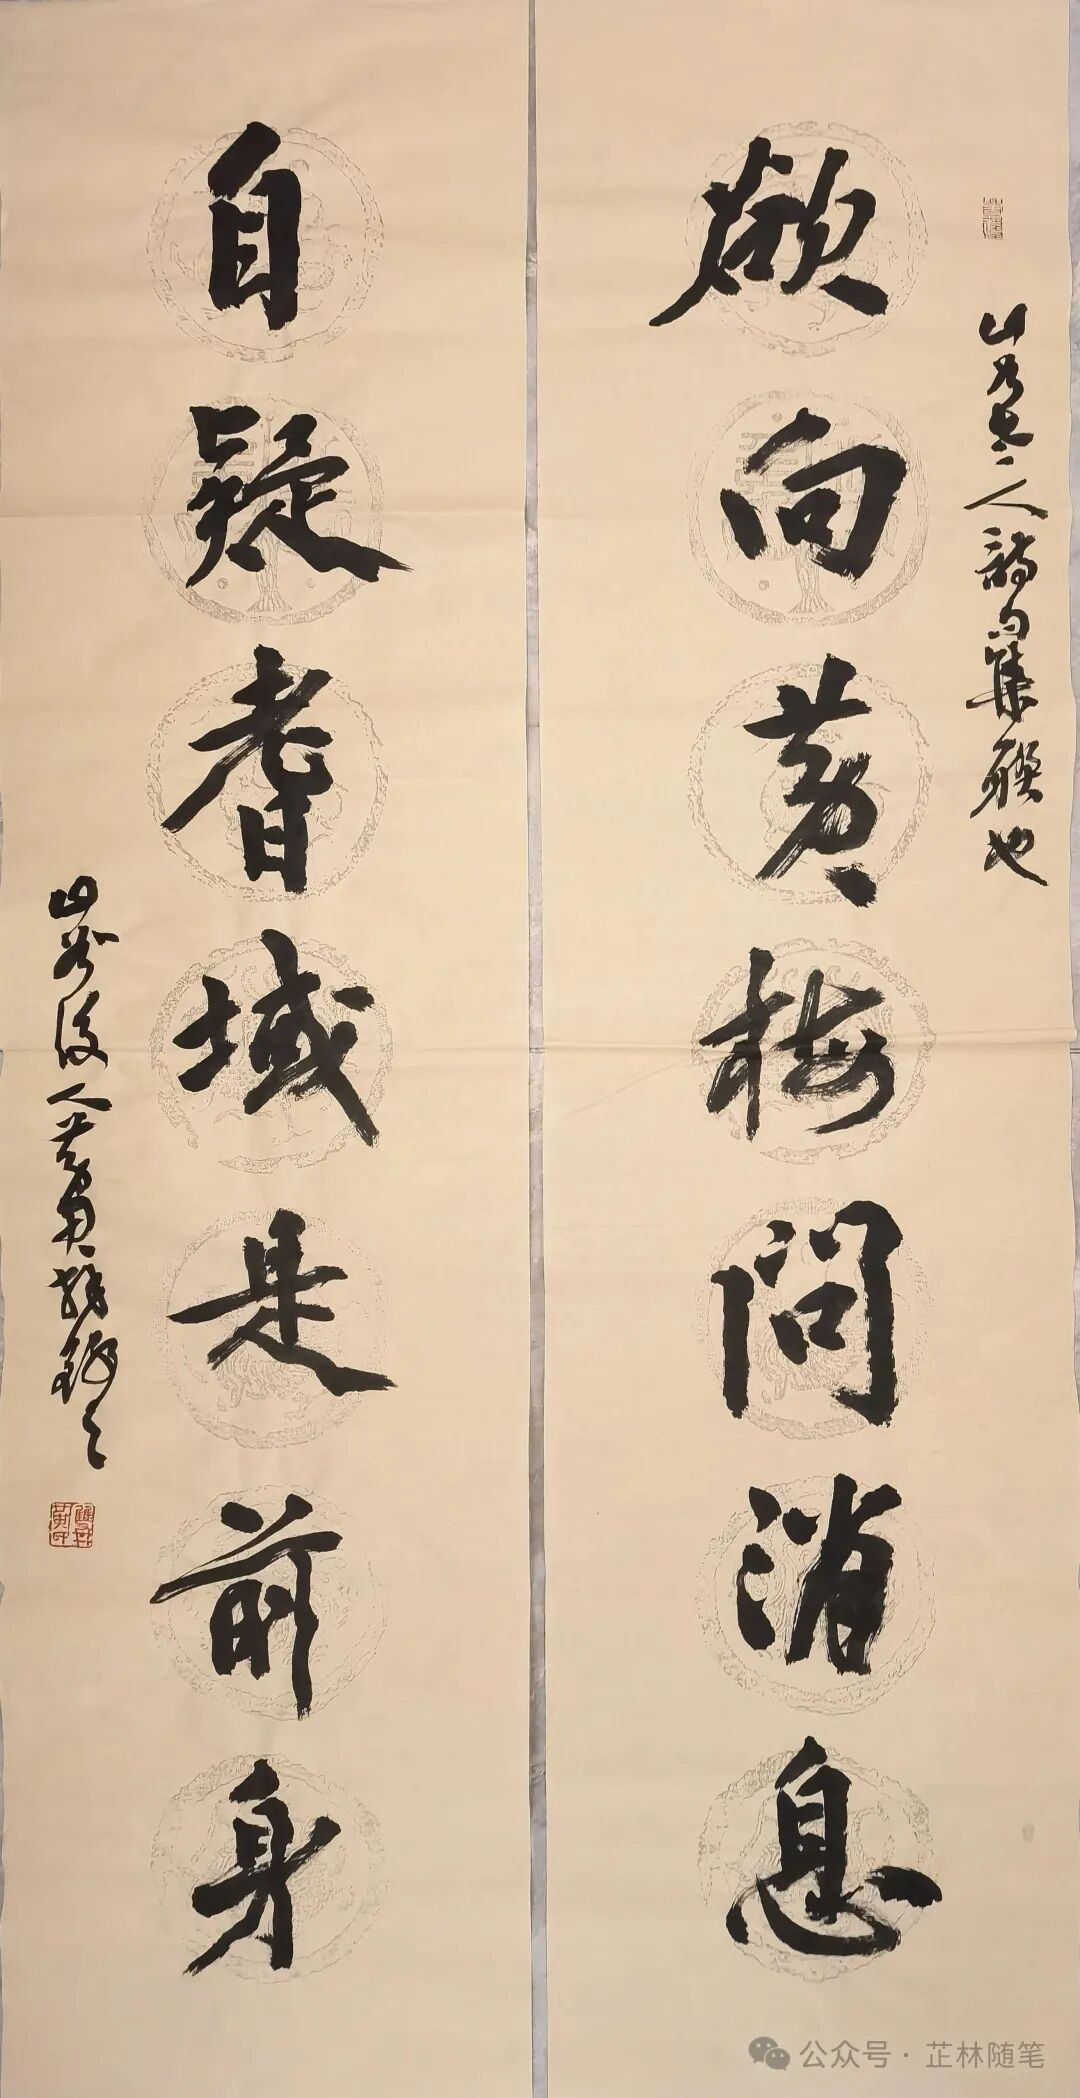 欲向黄梅问消息
山谷老人诗句集联也
自疑耆域是前身
山谷后人黄
公众号·芷林随笔